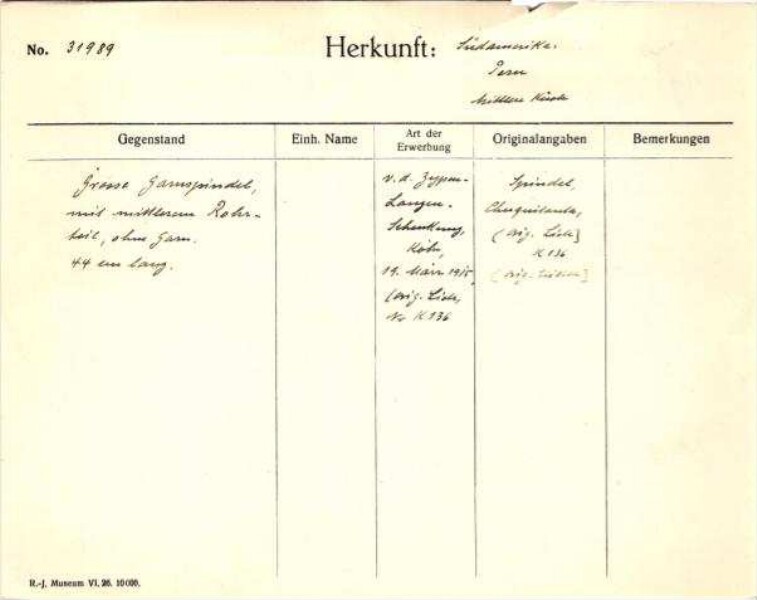 No. 31989
Herkunft: Südamerika.
Peru
Mittlere Küste
Gegenstand
Einh. Name
Art der Erwerbung
Originalangaben
Bemerkungen
Grosse Garnspindel,
mit mittlerem Rohr-
teil, ohne Garn.
44 cm lang.
v. d. Zypen-
Langen-
Schenkung,
Köln,
19. März 1915,
(orig.
No K 136
Spindel,
Chuquitanta,
(orig.
K 136
(orig.
R.-J. Museum VI. 26. 10000.